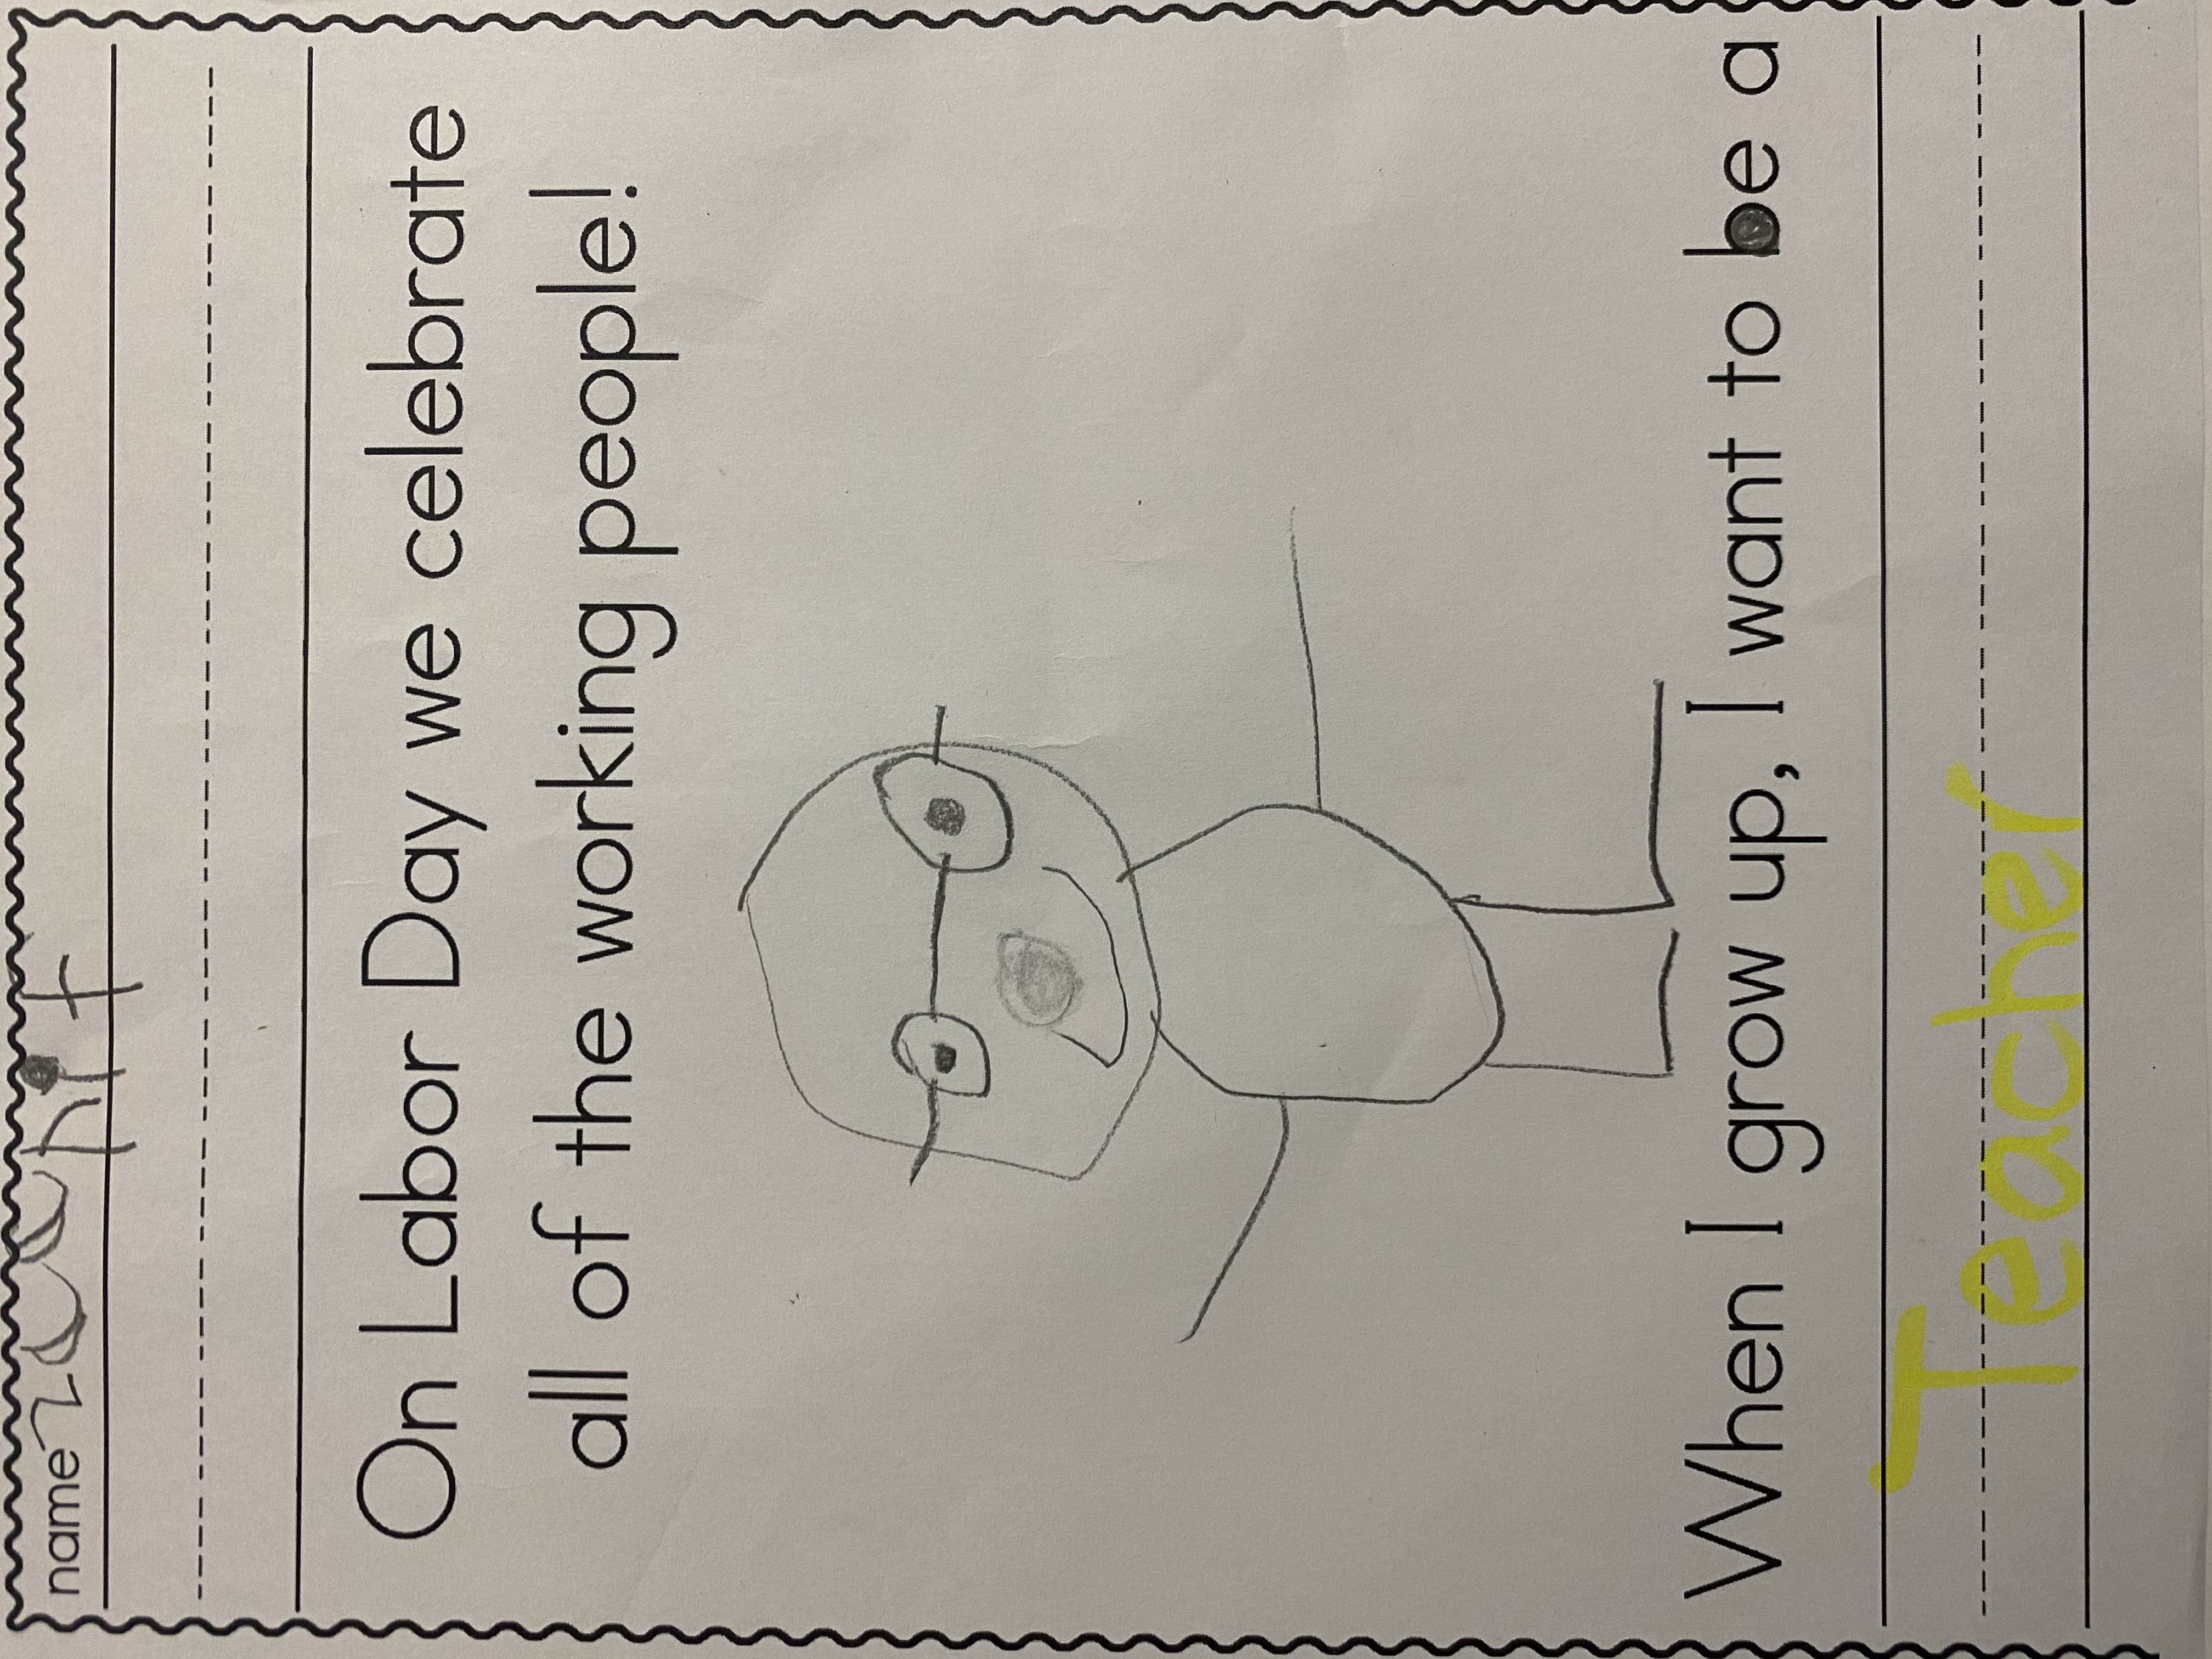 name
On Labor Day we celebrate
all of the working people!
When I grow up, I want to be a
Teacher